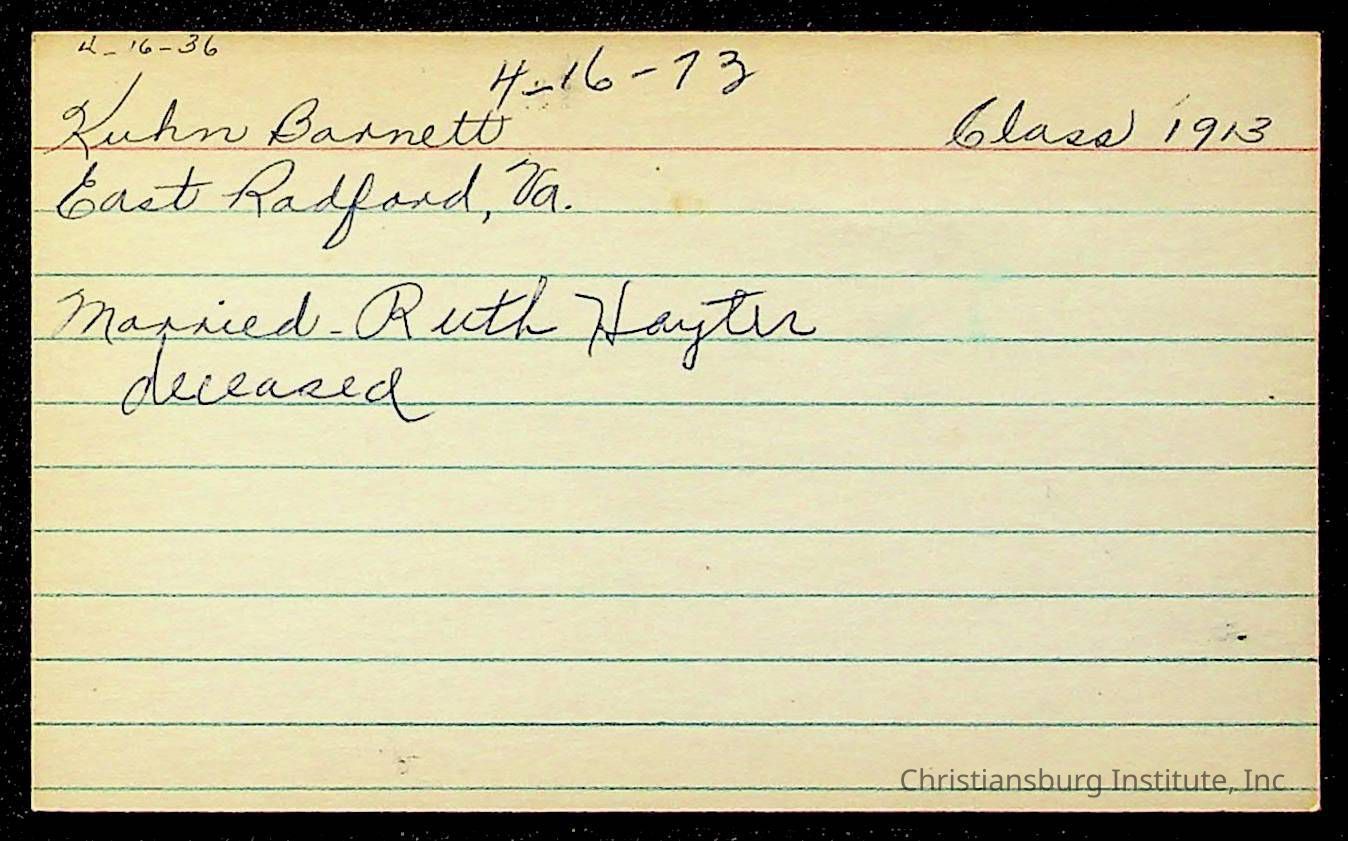 4-16-36
4-16-73
Kuhn Barnett Class 1913
East Radford, Va.
Married - Ruth Hayter
deceased
Christiansburg Institute, Inc